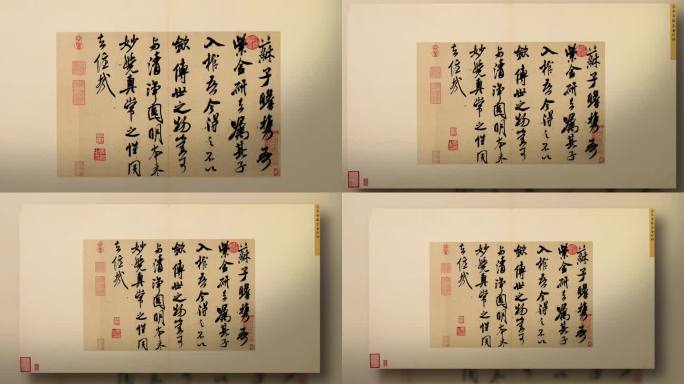 蘇子瞻携吾
紫金研去嘱其子
入棺吾今得之不以
斂傳世之物豈可
与清淨圓明本来
妙覺真常之性同
去住哉
蘇子瞻携吾
紫金研去嘱其子
入棺吾今得之不以
斂傳世之物豈可
与清淨圓明本来
妙覺真常之性同
去住哉
蘇子瞻携吾
紫金研去嘱其子
入棺吾今得之不以
斂傳世之物豈可
与清淨圓明本来
妙覺真常之性同
去住哉
蘇子瞻携吾
紫金研去嘱其子
入棺吾今得之不以
斂傳世之物豈可
与清淨圓明本来
妙覺真常之性同
去住哉